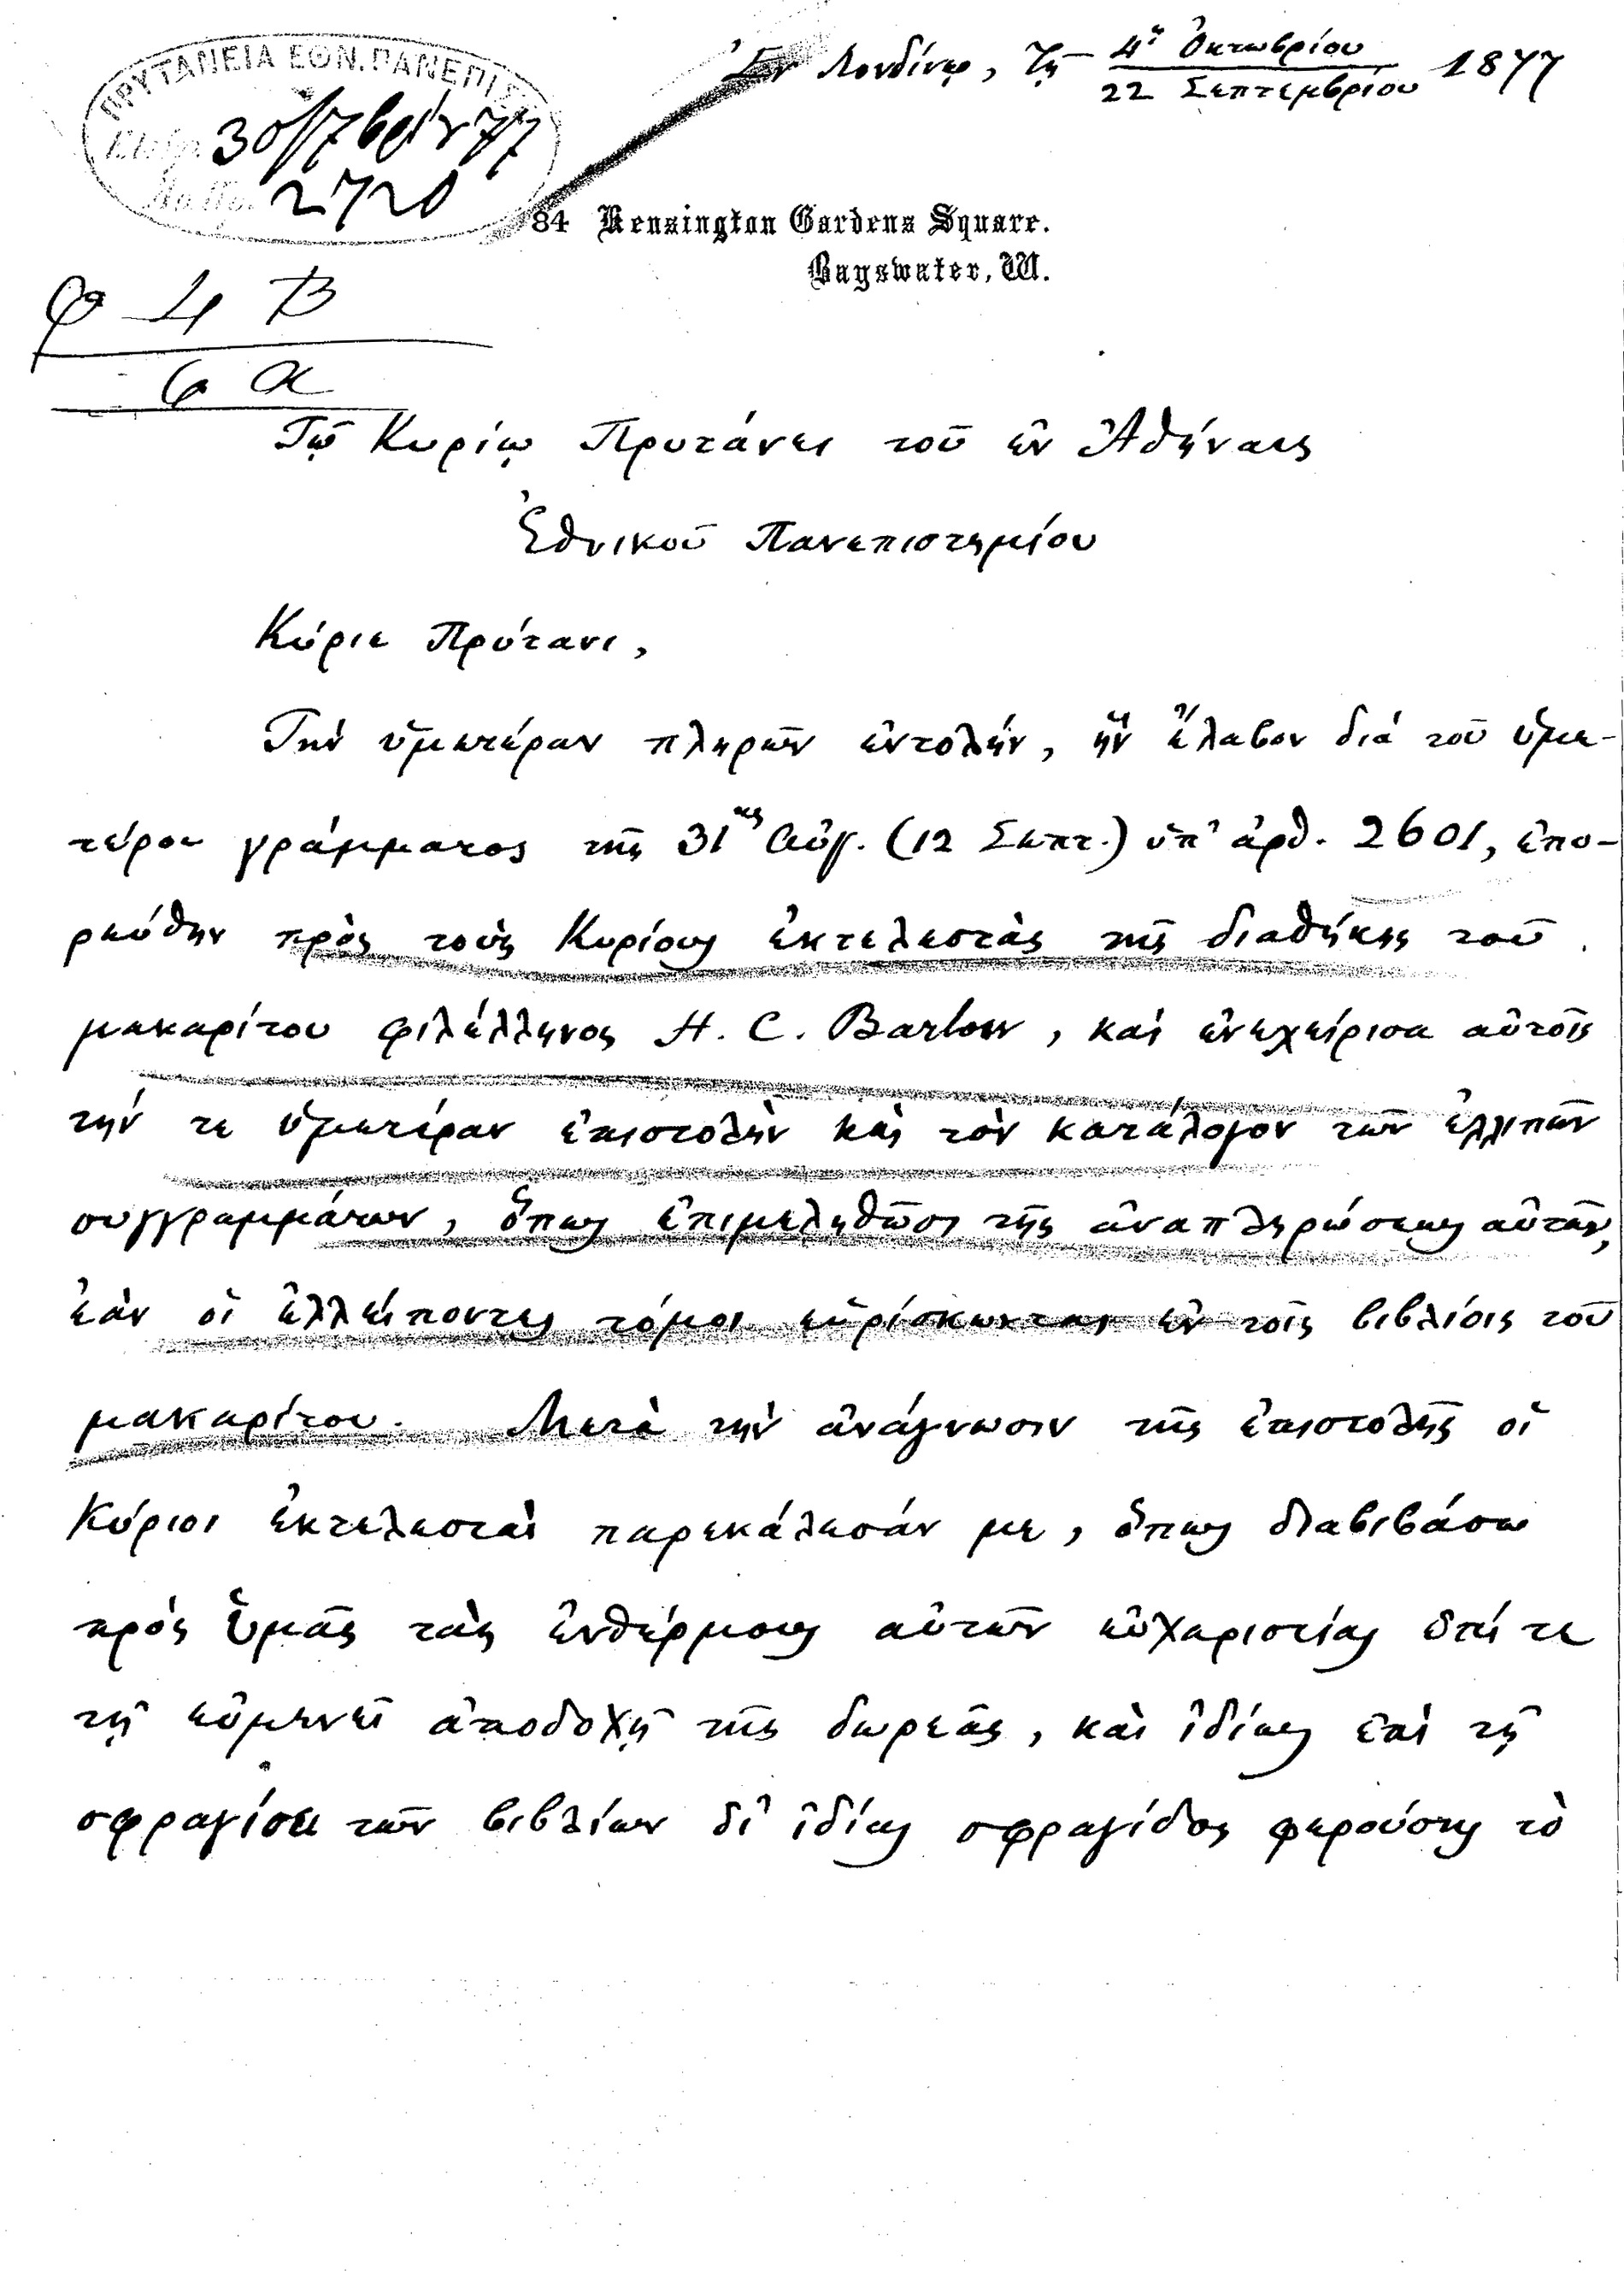 ΠΡΥΤΑΝΕΙΑ ΕΘΝ. ΠΑΝΕΠΙΣ
30/7βρίου 77
2720
Ἐν Λονδίνῳ, τῇ 4ῃ Ὀκτωβρίου 1877
22 Σεπτεμβρίου
84 Kensington Gardens Square.
Bayswater, W.
Φ 4 Β
6 α
Τῷ Κυρίῳ Πρυτάνει τοῦ ἐν Ἀθήναις
Ἐθνικοῦ Πανεπιστημίου
Κύριε Πρύτανι,
Τὴν ὑμετέραν πληρῶν ἐντολήν, ἣν ἔλαβον διὰ τοῦ ὑμε-
τέρου γράμματος τῆς 31ης Αὐγ. (12 Σεπτ.) ὑπ' ἀρθ. 2601, ἐπο-
ρεύθην πρὸς τοὺς Κυρίους ἐκτελεστὰς τῆς διαθήκης τοῦ
μακαρίτου φιλέλληνος H. C. Barlow, καὶ ἐνεχείρισα αὐτοῖς
τήν τε ὑμετέραν ἐπιστολὴν καὶ τὸν κατάλογον τῶν ἐλλιπῶν
συγγραμμάτων, ὅπως ἐπιμεληθῶσι τῆς ἀναπληρώσεως αὐτῶν,
ἐὰν οἱ ἐλλείποντες τόμοι εὑρίσκωνται ἐν τοῖς βιβλίοις τοῦ
μακαρίτου. Μετὰ τὴν ἀνάγνωσιν τῆς ἐπιστολῆς οἱ
Κύριοι ἐκτελεσταὶ παρεκάλεσάν με, ὅπως διαβιβάσω
πρὸς Ὑμᾶς τὰς ἐνθέρμους αὐτῶν εὐχαριστίας ἐπί τε
τῇ εὐμενεῖ ἀποδοχῇ τῆς δωρεᾶς, καὶ ἰδίως ἐπὶ τῇ
σφραγίσει τῶν βιβλίων δι' ἰδίας σφραγίδος φερούσης τὸ